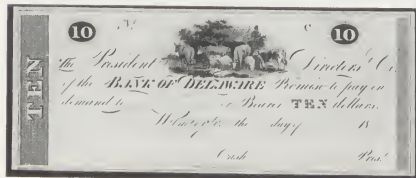 10 10
TEN
The President Directors & Co.
of the BANK OF DELAWARE Promise to pay on
demand to or Bearer TEN dollars.
the day of 18
Cash Pres.